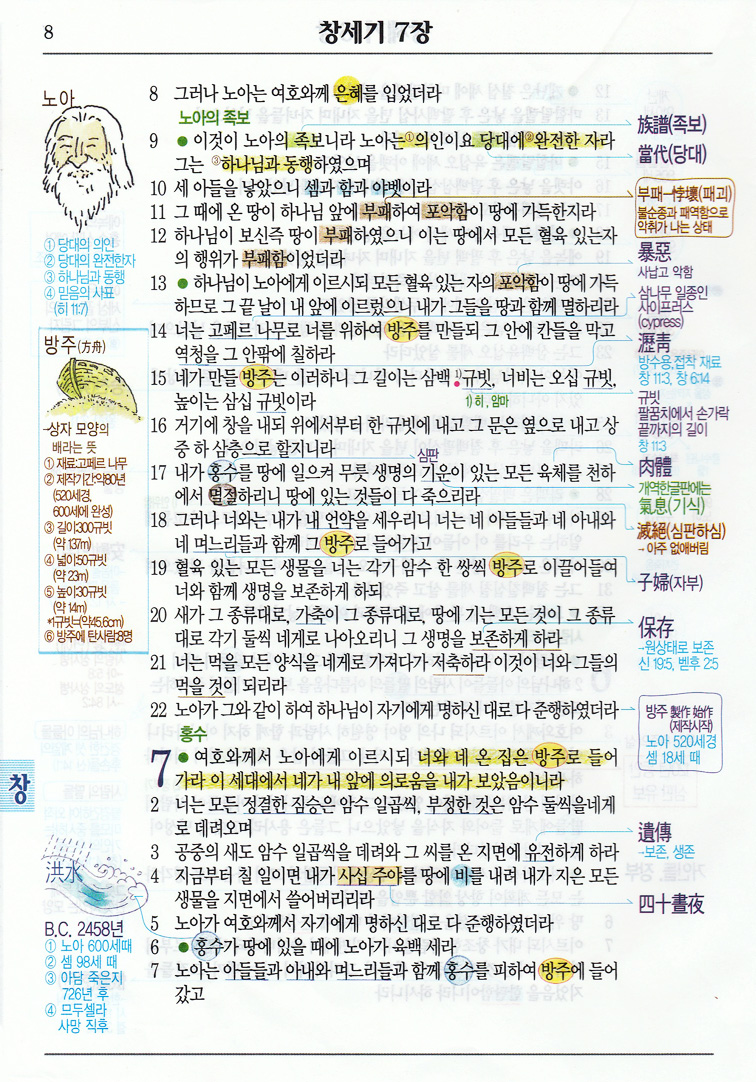 8
창세기 7장
노아
① 당대의 의인
② 당대의 완전한자
③ 하나님과 동행
④ 믿음의 사표
(히 11:7)
방주(方舟)
-상자 모양의
배라는 뜻
① 재료:고페르 나무
② 제작기간:약80년
(520세경,
600세에 완성)
③ 길이:300규빗
(약 137m)
④ 넓이:50규빗
(약 23m)
⑤ 높이:30규빗
(약 14m)
*1규빗=(약45.6cm)
⑥ 방주에 탄사람:8명
창
洪水
B.C. 2458년
① 노아 600세때
② 셈 98세 때
③ 아담 죽은지
726년 후
④ 므두셀라
사망 직후
8 그러나 노아는 여호와께 은혜를 입었더라
노아의 족보
9 ● 이것이 노아의 족보니라 노아는 ①의인이요 당대에 ②완전한 자라
그는 ③하나님과 동행하였으며
10 세 아들을 낳았으니 셈과 함과 야벳이라
11 그 때에 온 땅이 하나님 앞에 부패하여 포악함이 땅에 가득한지라
12 하나님이 보신즉 땅이 부패하였으니 이는 땅에서 모든 혈육 있는자
의 행위가 부패함이었더라
13 ● 하나님이 노아에게 이르시되 모든 혈육 있는 자의 포악함이 땅에 가득
하므로 그 끝 날이 내 앞에 이르렀으니 내가 그들을 땅과 함께 멸하리라
14 너는 고페르 나무로 너를 위하여 방주를 만들되 그 안에 칸들을 막고
역청을 그 안팎에 칠하라
15 네가 만들 방주는 이러하니 그 길이는 삼백 1)규빗, 너비는 오십 규빗,
높이는 삼십 규빗이라
1) 히, 암마
16 거기에 창을 내되 위에서부터 한 규빗에 내고 그 문은 옆으로 내고 상
중 하 삼층으로 할지니라
심판
17 내가 홍수를 땅에 일으켜 무릇 생명의 기운이 있는 모든 육체를 천하
에서 멸절하리니 땅에 있는 것들이 다 죽으리라
18 그러나 너와는 내가 내 언약을 세우리니 너는 네 아들들과 네 아내와
네 며느리들과 함께 그 방주로 들어가고
19 혈육 있는 모든 생물을 너는 각기 암수 한 쌍씩 방주로 이끌어들여
너와 함께 생명을 보존하게 하되
20 새가 그 종류대로, 가축이 그 종류대로, 땅에 기는 모든 것이 그 종류
대로 각기 둘씩 네게로 나아오리니 그 생명을 보존하게 하라
21 너는 먹을 모든 양식을 네게로 가져다가 저축하라 이것이 너와 그들의
먹을 것이 되리라
22 노아가 그와 같이 하여 하나님이 자기에게 명하신 대로 다 준행하였더라
홍수
7 ● 여호와께서 노아에게 이르시되 너와 네 온 집은 방주로 들어
가라 이 세대에서 네가 내 앞에 의로움을 내가 보았음이니라
2 너는 모든 정결한 짐승은 암수 일곱씩, 부정한 것은 암수 둘씩을네게
로 데려오며
3 공중의 새도 암수 일곱씩을 데려와 그 씨를 온 지면에 유전하게 하라
4 지금부터 칠 일이면 내가 사십 주야를 땅에 비를 내려 내가 지은 모든
생물을 지면에서 쓸어버리리라
5 노아가 여호와께서 자기에게 명하신 대로 다 준행하였더라
6 ● 홍수가 땅에 있을 때에 노아가 육백 세라
7 노아는 아들들과 아내와 며느리들과 함께 홍수를 피하여 방주에 들어
갔고
族譜(족보)
當代(당대)
부패→悖壞(패괴)
불순종과 패역함으로
악취가 나는 상태
暴惡
사납고 악함
삼나무 일종인
사이프러스
(cypress)
瀝靑
방수용,접착 재료
창 11:3, 창 6:14
규빗
팔꿈치에서 손가락
끝까지의 길이
창 11:3
肉體
개역한글판에는
氣息(기식)
滅絕(심판하심)
→ 아주 없애버림
子婦(자부)
保存
→원상태로 보존
신 19:5, 벧후 2:5
방주 製作 始作
(제작시작)
노아 520세경
셈 18세 때
遺傳
→보존, 생존
四十晝夜